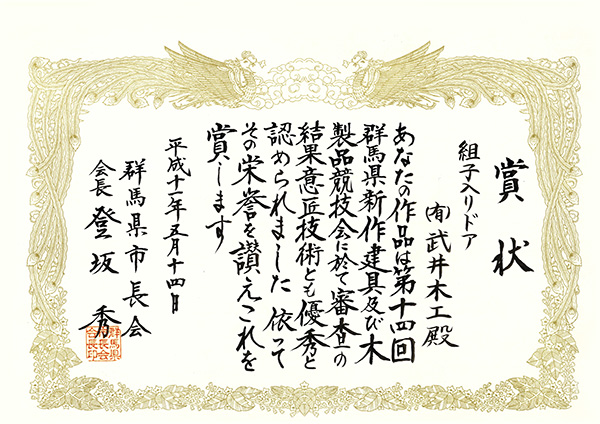 賞状
組子入りドア
㈲武井木工殿
あなたの作品は第十四回
群馬県新作建具及び木
製品競技会に於て審査の
結果意匠技術とも優秀と
認められました依って
その栄誉を讃えこれを
賞します
平成十一年五月十四日
群馬県市長会
会長 登坂 秀
群馬県市長会会長印